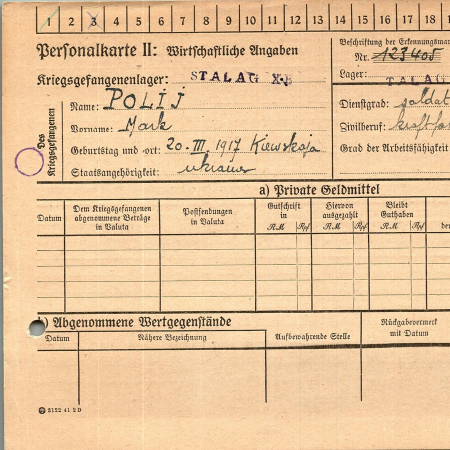 1 2 3 4 5 6 7 8 9 10 11 12 13 14 15 16 17 18
Personalkarte II: Wirtschaftliche Angaben
Beschriftung der Erkennungsmar
Nr. 123405
Kriegsgefangenenlager: STALAG XB
Lager: TALAG
Des Kriegsgefangenen
Name: POLIJ
Dienstgrad: soldat
Vorname: Mark
Zivilberuf: kraftfa
Geburtstag und -ort: 20. III. 1917 Kiewskaja
Grad der Arbeitsfähigkeit
Staatsangehörigkeit:
a) Private Geldmittel
Datum
Dem Kriegsgefangenen abgenommene Beträge in Valuta
Postsendungen in Valuta
Gutschrift in
Hiervon ausgezahlt
Bleibt Guthaben
RM Rpf RM Rpf RM Rpf
b) Abgenommene Wertgegenstände
Datum
Nähere Bezeichnung
Aufbewahrende Stelle
Rückgabevermerk mit Datum
3122 41 2 D